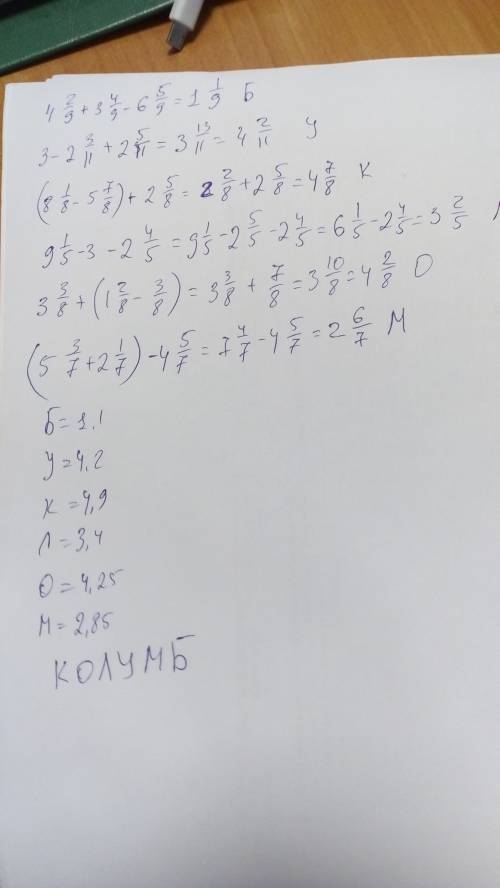 4 2/9 + 3 4/9 - 6 5/9 = 1 1/9 Б
3 - 2 3/11 + 2 5/11 = 3 13/11 = 4 2/11 У
(8 1/8 - 5 7/8) + 2 5/8 = 2 2/8 + 2 5/8 = 4 7/8 К
9 1/5 - 3 - 2 4/5 = 9 1/5 - 2 5/5 - 2 4/5 = 6 1/5 - 2 4/5 = 3 2/5
3 3/8 + (1 2/8 - 3/8) = 3 3/8 + 7/8 = 3 10/8 = 4 2/8 О
(5 3/7 + 2 1/7) - 4 5/7 = 7 4/7 - 4 5/7 = 2 6/7 М
Б = 1.1
У = 4,2
К = 4,9
Л = 3,4
О = 4,25
М = 2,85
КОЛУМБ